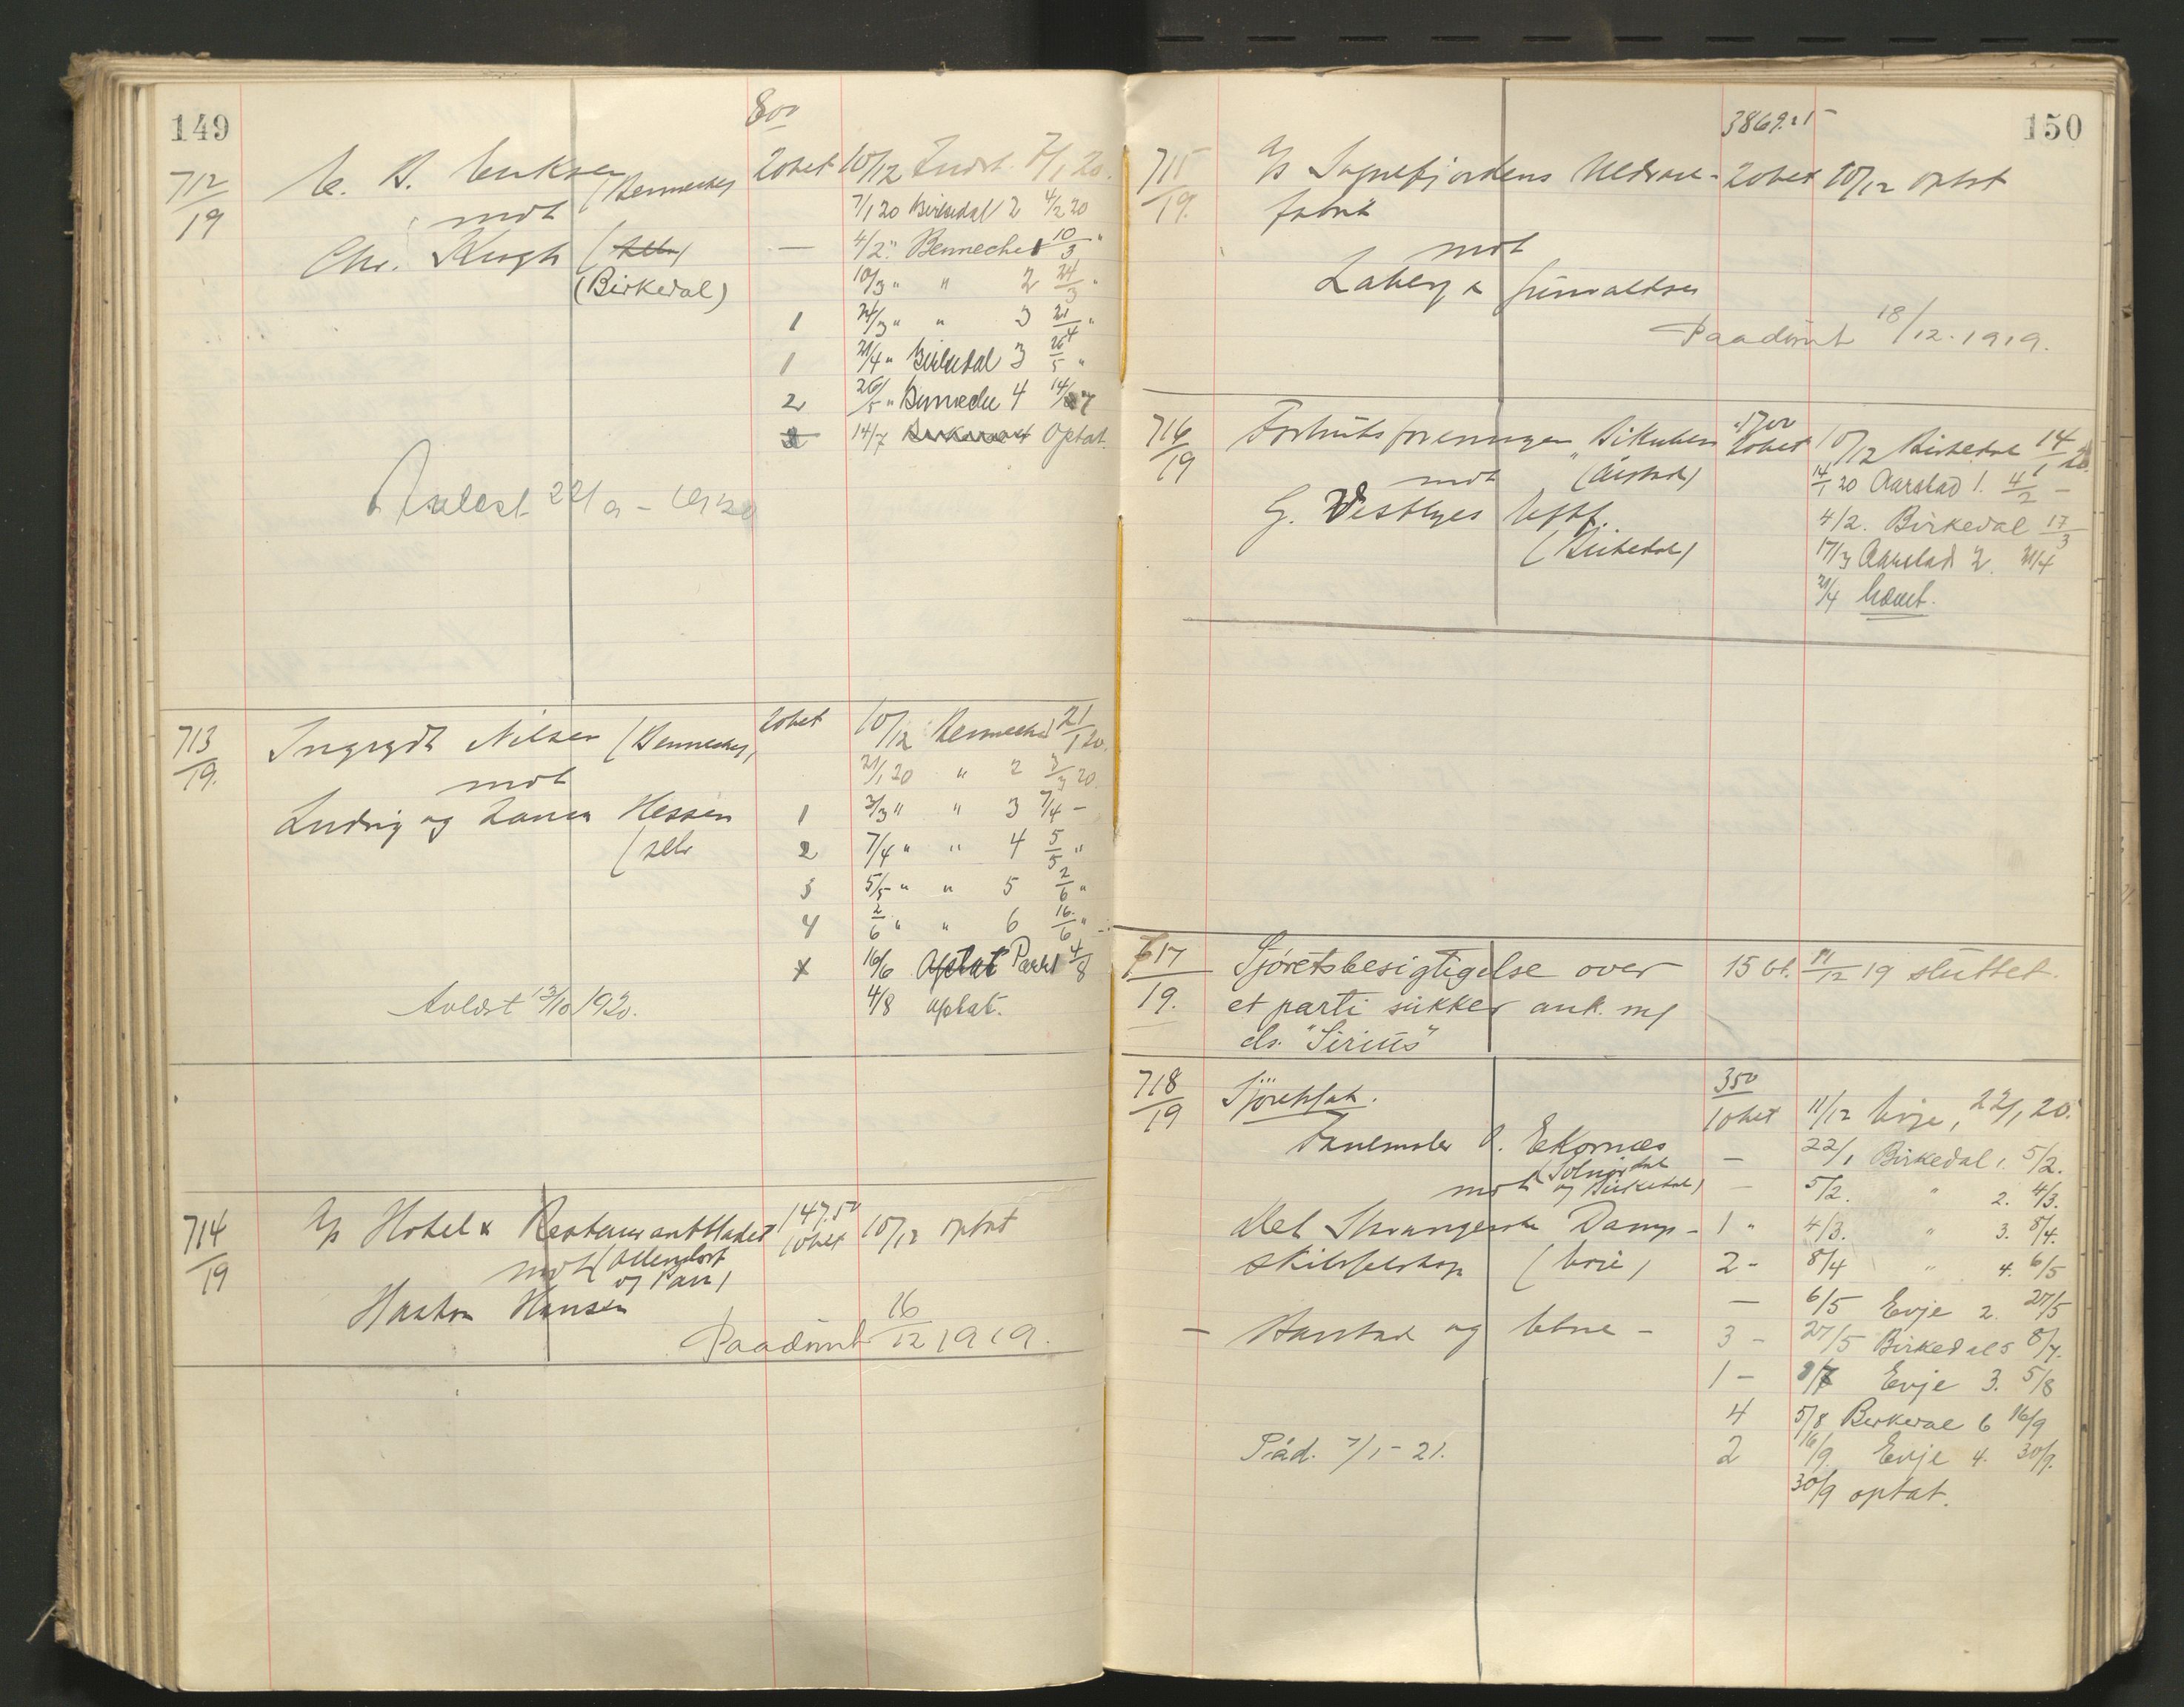 149
800
712/19
C. B. Eriksen (Bennechės
mot
Chr. Krogh (selv)
(Birkedal)
20het 10/12 Indst. 7/1 20.
7/1 20 Birkedal 2 4/2 20
— 4/2 " Benneche 1 10/3 "
10/3 " " 2 24/3 "
1 24/3 " " 3 21/4 "
1 21/4 " Birkedal 3 26/5 "
2 26/5 " Benneche 4 14/7
2 14/7 Birkedal Optat.
Avlest 22/9 - 1920
713/19.
Ingrydt Nilsen (Benneches)
mot
Ludvig og Laura Hessen
(selv
20het 10/12 Benneche 21/1 20.
21/1 20 " 2 3/3 20.
1 3/3 " " 3 7/4 –
2 7/4 " " 4 5/5 "
3 5/5 " " 5 2/6 "
4 2/6 " " 6 16/6 "
16/6 Optat Parr 4/8
4/8 optat.
Avlest 13/10 1920.
714/19
A/S Hotel & Restaurantbladet
mot (Ollendorf
og Parr)
Haakon Hansen
147.50
10het 10/12 optat
Paadømt 16/12 1919.
150
3869.25
715/19.
A/S Sognefjordens Uldvare-
fabrik
mot
Laberg & Grimaldsen
20het 10/12 optat
Paadømt 18/12. 1919.
716/19
Forbruksforeningen "Bikuben
mot (Aarstad)
G. Vestbyes Eftf.
(Birkedal)
1700
20het 10/12 Birkedal 14/1 20.
14/1 20 Aarstad 1. 4/2 –
4/2. Birkedal 17/3
17/3 Aarstad 2. 21/4
21/4 hævet.
717/19.
Sjøretsbesigtigelse over
et parti sukker ank. m/
ds. "Sirius"
15 bl. 11/12 19 sluttet.
718/19
Sjøretssak.
O. Ekornæs
mot (Solnørdal
og Birkedal)
Det Stavangerske Damp-
skibsselskap (Evje)
— Harstad og Etne —
Påd. 7/1 - 21.
350
10het 11/12 Evje, 22/1 20.
— 22/1 Birkedal 1. 5/2.
— 5/2. " 2. 4/3.
1 " 4/3. " 3. 8/4.
2 - 8/4 " 4. 6/5
— 6/5 Evje 2. 27/5
3 - 27/5 Birkedal 5 8/7.
1 - 8/7 Evje 3. 5/8
4 5/8 Birkedal 6 16/9
2 16/9. Evje 4. 30/9.
30/9 optat.